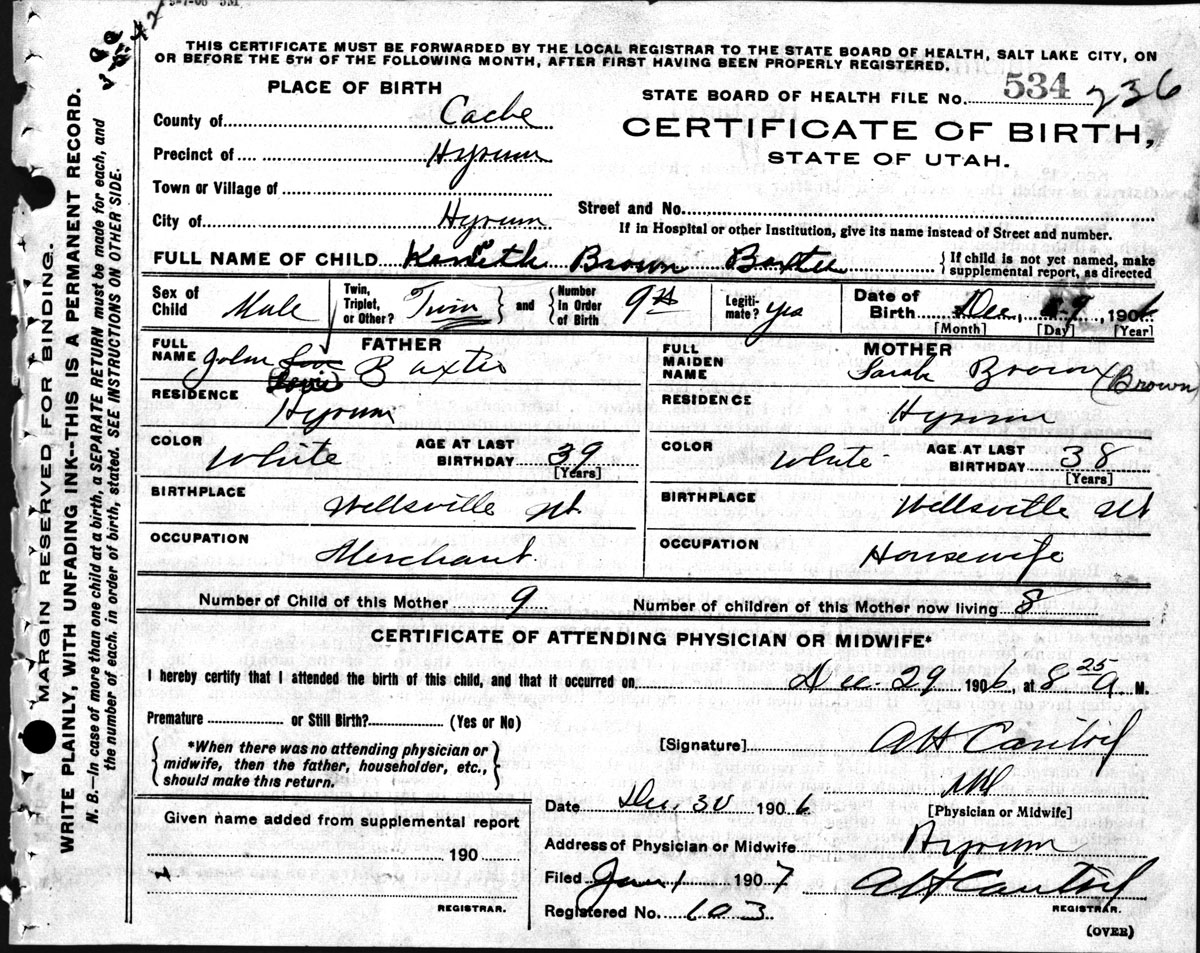 THIS CERTIFICATE MUST BE FORWARDED BY THE LOCAL REGISTRAR TO THE STATE BOARD OF HEALTH, SALT LAKE CITY, ON
OR BEFORE THE 5TH OF THE FOLLOWING MONTH, AFTER FIRST HAVING BEEN PROPERLY REGISTERED.
PLACE OF BIRTH
STATE BOARD OF HEALTH FILE No. 534 236
County of Cache
CERTIFICATE OF BIRTH,
STATE OF UTAH.
Precinct of Hyrum
Town or Village of
City of Hyrum
Street and No.
If in Hospital or other Institution, give its name instead of Street and number.
FULL NAME OF CHILD Brown Baxter
{ If child is not yet named, make
supplemental report, as directed
Sex of Child Male
Twin, Triplet, or Other? Twin } and { Number in Order of Birth 9th
Legitimate? yes
Date of Birth Dec, 29, 1906
[Month] [Day] [Year]
FATHER
FULL NAME John Baxter
RESIDENCE Hyrum
COLOR White AGE AT LAST BIRTHDAY 39 [Years]
BIRTHPLACE Wellsville Ut
OCCUPATION Merchant
MOTHER
FULL MAIDEN NAME Sarah Brown (Brown)
RESIDENCE Hyrum
COLOR White AGE AT LAST BIRTHDAY 38 [Years]
BIRTHPLACE Wellsville Ut
OCCUPATION Housewife
Number of Child of this Mother 9 Number of children of this Mother now living 8
CERTIFICATE OF ATTENDING PHYSICIAN OR MIDWIFE*
I hereby certify that I attended the birth of this child, and that it occurred on Dec. 29 1906, at 8 25 A M.
Premature or Still Birth? (Yes or No)
{ *When there was no attending physician or
midwife, then the father, householder, etc.,
should make this return. }
[Signature] AH Cantril
MD
[Physician or Midwife]
Date Dec. 30 1906
Given name added from supplemental report
190
REGISTRAR.
Address of Physician or Midwife Hyrum
Filed Jan 1 1907 AH Cantril
REGISTRAR.
Registered No. 103
(OVER)
MARGIN RESERVED FOR BINDING.
WRITE PLAINLY, WITH UNFADING INK--THIS IS A PERMANENT RECORD.
N. B.—In case of more than one child at a birth, a SEPARATE RETURN must be made for each, and
the number of each, in order of birth, stated. SEE INSTRUCTIONS ON OTHER SIDE.